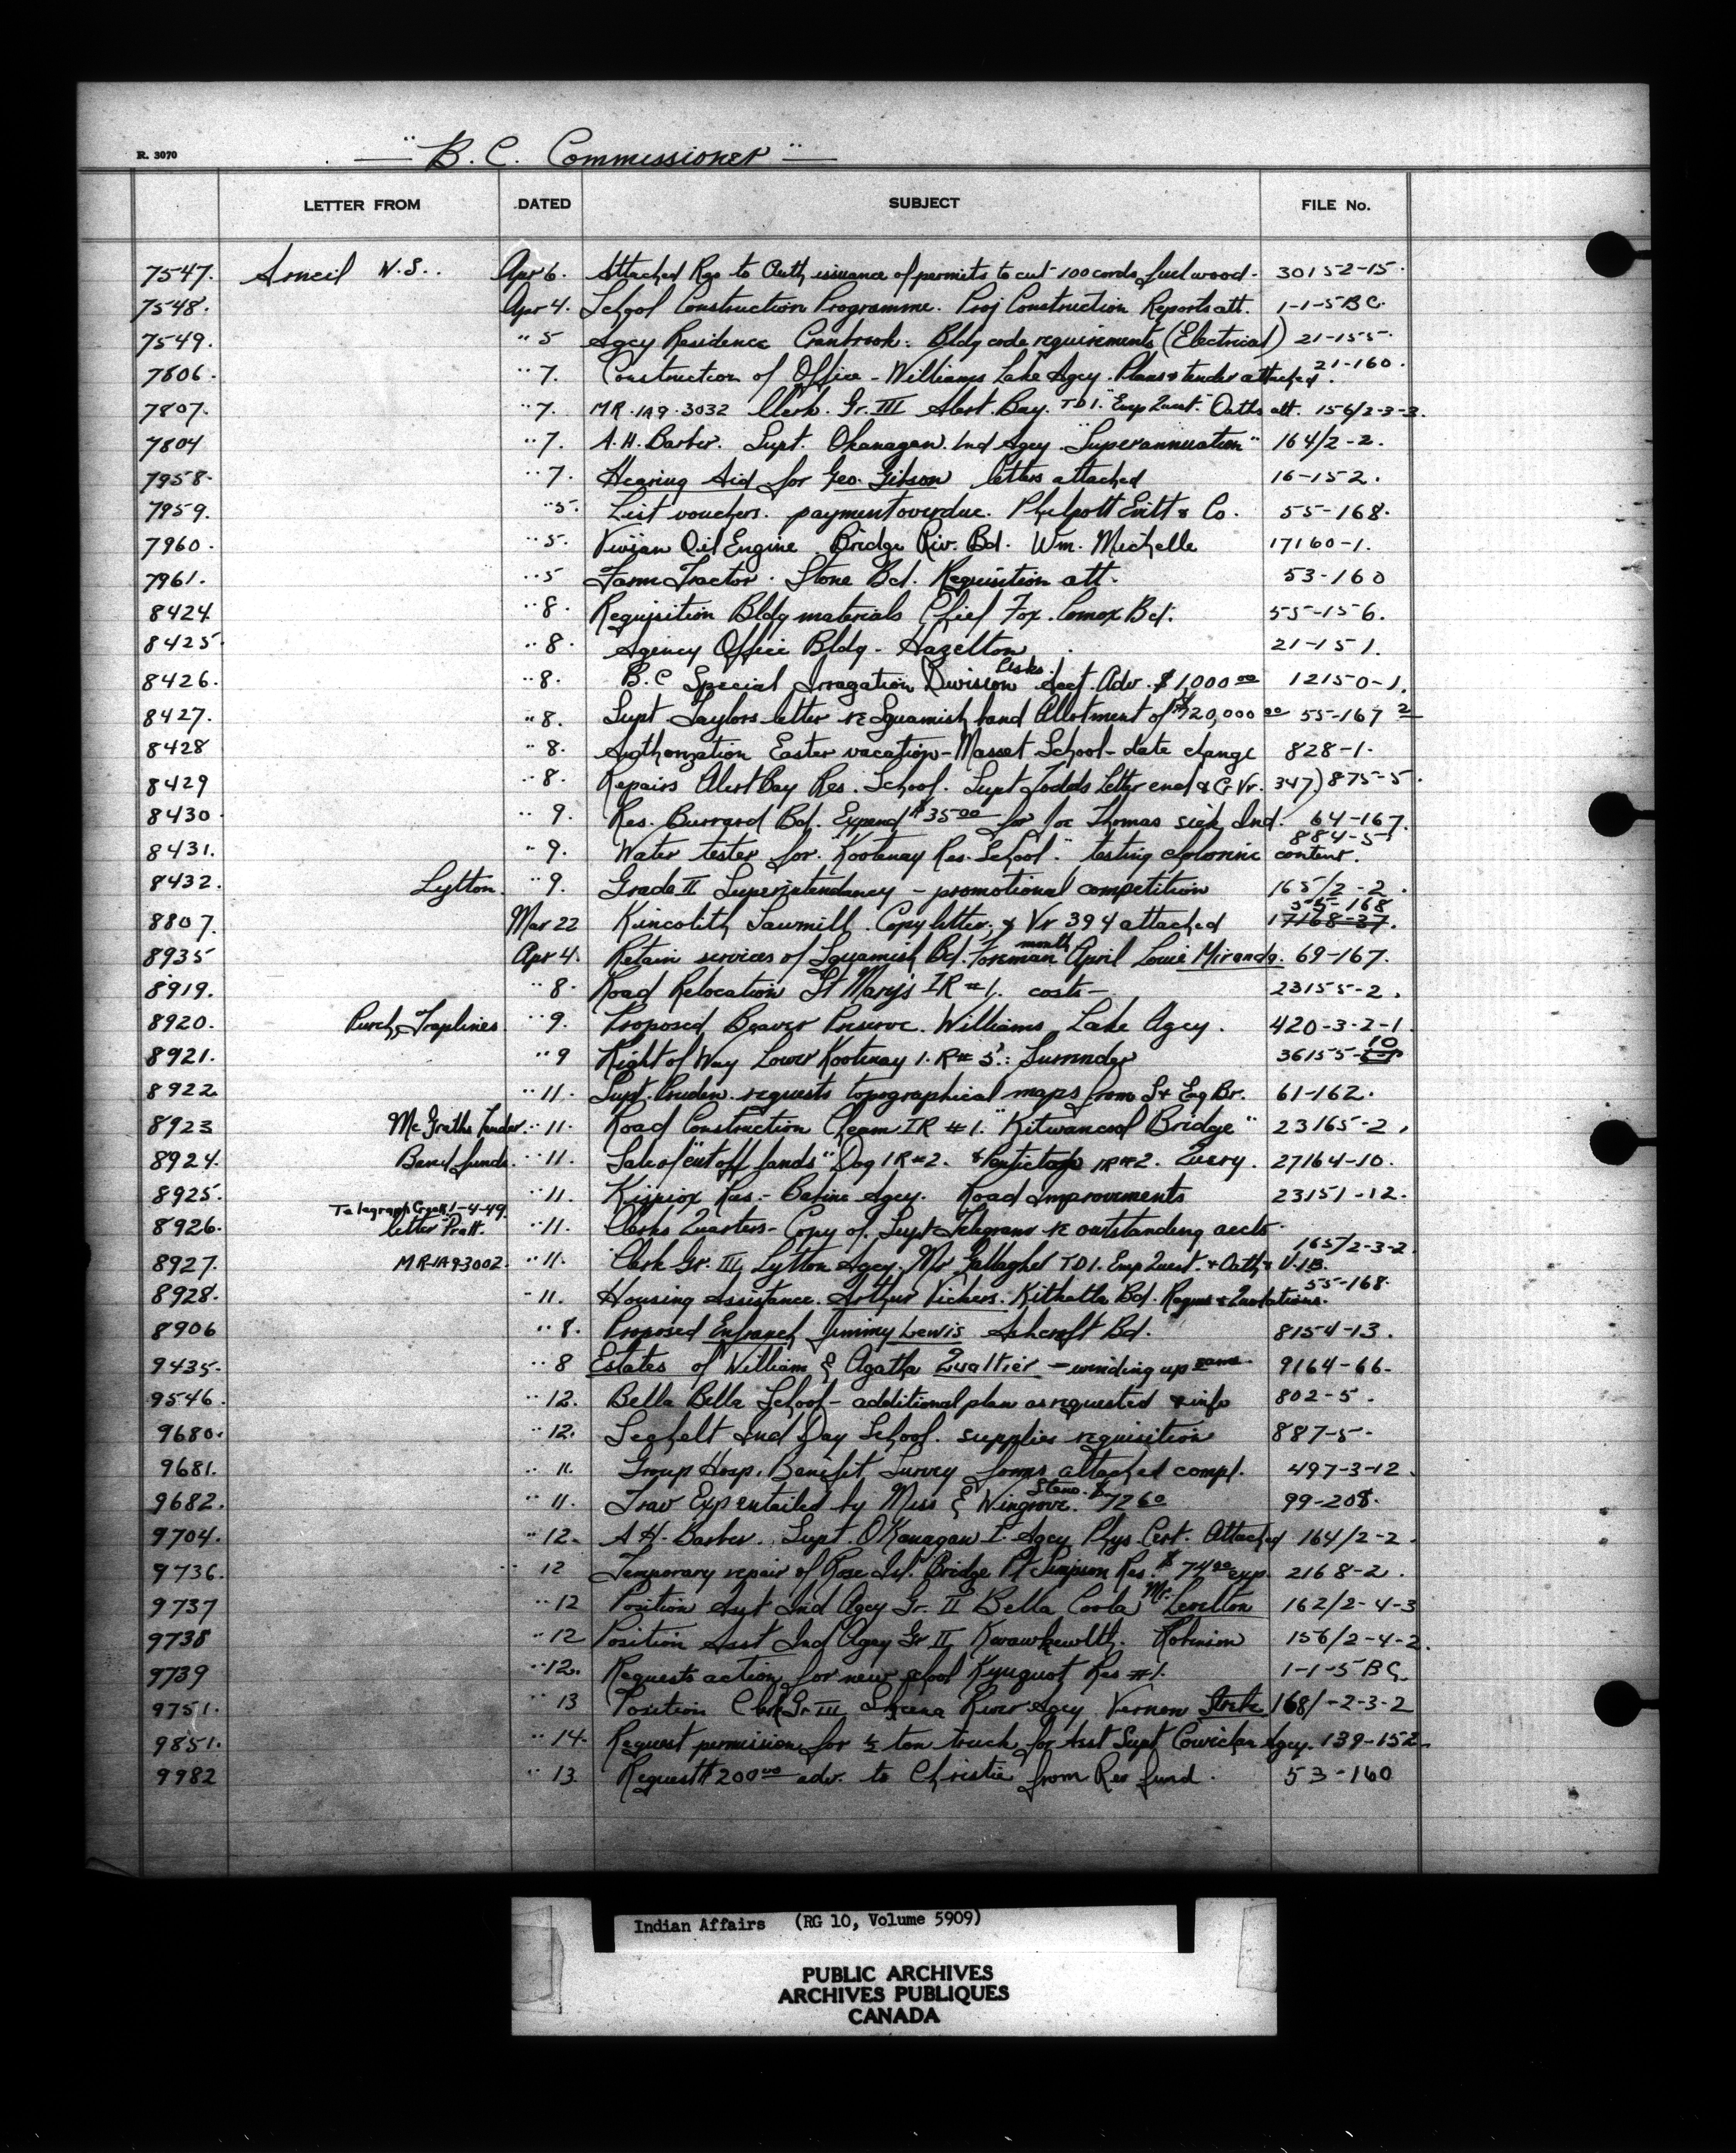 R. 3070
" B. C. Commissioner "
LETTER FROM DATED SUBJECT FILE No.
7547. Arneil W.S.. Apr 6. Attached Rqs to Auth issuance of permits to cut 100 cords fuel wood. 30152-15.
7548. Apr 4. School Construction Programme. Proj Construction Reports att. 1-1-5 BC.
7549. " 5 Agcy Residence Cranbrook. Bldg code requirements (Electrical) 21-155.
7806. " 7. Construction of Office - Williams Lake Agcy. Plans & tender attached. 21-160.
7807. " 7. MR. IA9.3032 Clerk. Gr. III Alert Bay. TD1. "Emp Quest." Oaths att. 156/2-3-3.
7804 " 7. A.H. Barber. Supt. Okanagan. Ind Agcy "Superannuation" 164/2-2.
7958. " 7. Hearing Aid for Geo. Gibson letters attached 16-152.
7959. " 5. List vouchers. payment overdue. Philpott Evitt & Co. 55-168.
7960. " 5. Vivian Oil Engine Bridge Riv. Bd. Wm. Michelle 17160-1.
7961. " 5 Farm Tractor. Stone Bd. Requisition att. 53-160
8424. " 8. Requisition Bldg materials Chief Fox. Comox Bd. 55-156.
8425. " 8. Agency Office Bldg - Hazelton 21-151.
8426. " 8. B.C Special Irragation Division Asks Acct. Adv. $1,000 00 12150-1.
8427. " 8. Supt Taylors letter re Squamish band Allotment of $20,000 00 55-167 2
8428 " 8. Authorization Easter vacation - Masset School - date change 828-1.
8429 " 8. Repairs Alert Bay Res. School. Supt Todds letter encl & C. Vr. 347) 875-5.
8430 " 9. Res. Burrard Bd. Expend $35 00 for Joe Thomas sick Ind. 64-167.
8431. " 9. Water tester for. Kootenay Res. School. " testing chlorine content. 884-5
8432. Lytton. " 9. Grade II Superintendancy - promotional competition 165/2-2.
8807. Mar 22 Kincolith Sawmill. Copy letter, & Vr 394 attached 55-168 17168-37.
8935 Apr 4. Retain services of Squamish Bd. Foreman month April Louie Miranda. 69-167.
8919. " 8. Road Relocation St Mary's IR #1. costs - 23155-2.
8920. Purch. Traplines " 9. Proposed Beaver Preserve. Williams Lake Agcy. 420-3-2-1
8921. " 9 Right of Way Lower Kootenay I.R# 5. : Surrender 36155-10
8922. " 11. Supt. Pruden requests topographical maps from S & Eng Br. 61-162.
8923 McGraths Tender " 11. Road Construction Cheam IR #1. "Kitwancool Bridge" 23165-2.
8924. Band funds. " 11. Sale of "cut off lands" Dog IR #2. & Penticton IR #2. Query. 27164-10.
8925. " 11. Kispiox Res. - Babine Agcy. Road Improvements 23151-12.
8926. Telegraph Creek 1-4-49. letter Pratt. " 11. Clerks Quarters - Copy of Supt Telegrams re outstanding accts.
8927. MR-IA9-3002. " 11. Clerk Gr. III Lytton Agcy. Mr Gallagher TD1. Emp Quest. & Oath & V.IB. 165/2-3-2
8928. " 11. Housing Assistance. Arthur Vickers. Kitkatla Bd. Requis & Quotations. 55-168.
8906 " 8. Proposed Enfranch Jimmy Lewis Ashcroft Bd. 8154-13.
9435. " 8 Estates of William & Agatha Qualtier - winding up same. 9164-66.
9546. " 12. Bella Bella School - additional plan as requested & info 802-5.
9680. " 12. Sechelt Ind Day School. supplies requisition 887-5.
9681. " 11. Group Hosp. Benefit Survey forms attached compl. 497-3-12.
9682. " 11. Trav Exp entailed by Miss E Wingrove. Steno. $72 60 99-208.
9704. " 12. A H. Barber. Supt. OKanagan I. Agcy Phys. Cert. Attached 164/2-2.
9736. " 12 Temporary repair of Rose Isl. Bridge Pt Simpson Res. $74 00 exp. 2168-2.
9737 " 12 Position Asst Ind Agcy Gr. II Bella Coola Mr. Levelton 162/2-4-3
9738 " 12 Position Asst Ind Agcy Gr II Kwawkewlth. Robinson 156/2-4-2.
9739 " 12. Requests action for new school Kyuquot Res #1. 1-1-5 BC.
9751. " 13 Position Clerk Gr III Skeena River Agcy Vernon 168/-2-3-2
9851. " 14. Request permission for ½ ton truck for Asst Supt Cowichan Agcy. 139-152.
9982 " 13. Request $200 00 adv. to Christie from Rev fund. 53-160
Indian Affairs (RG 10, Volume 5909)
PUBLIC ARCHIVES
ARCHIVES PUBLIQUES
CANADA